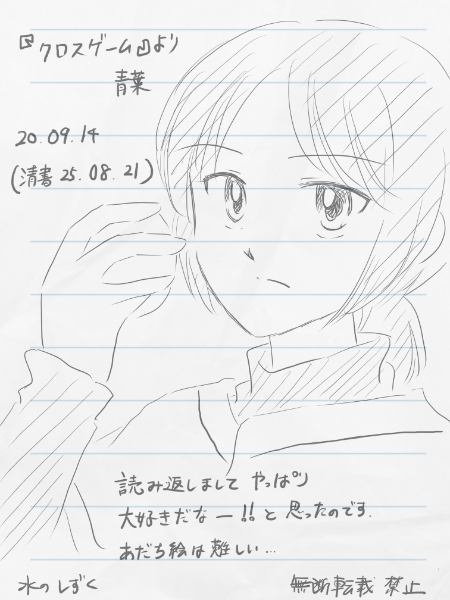 『クロスゲーム』より
青葉
20.09.14
(清書 25.08.21)
読み返しまして やっぱり
大好きだなー!! と 思ったのです.
あだち絵は難しい...
水のしずく
無断転載 禁止